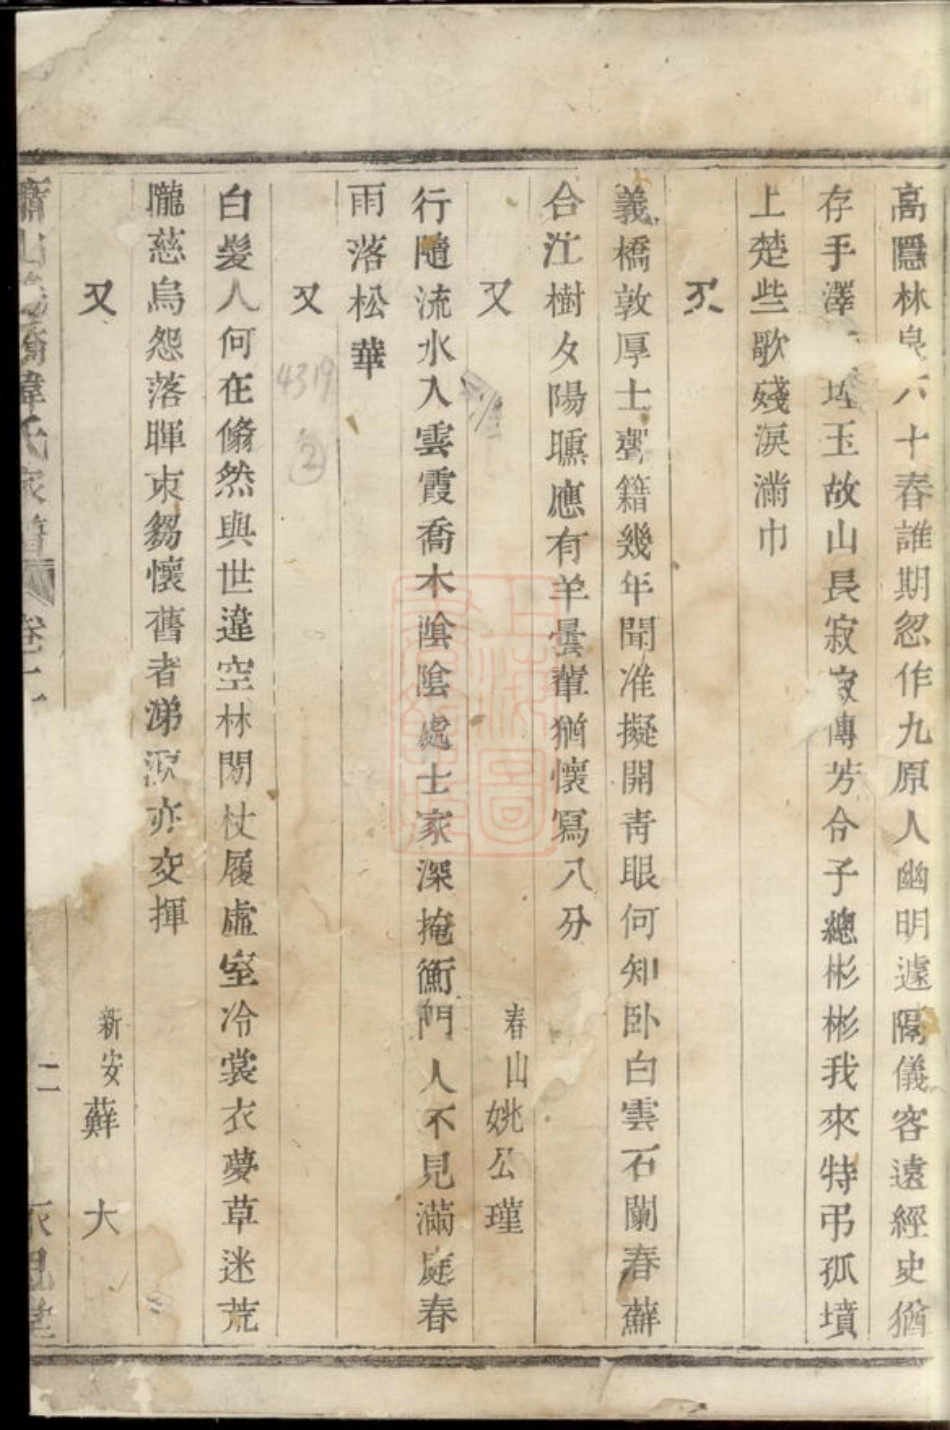 高隱林泉六十春誰期忽作九原人幽明遽隔儀容遠經史猶
存手澤埋玉故山長寂寂傳芳令子總彬彬我來特弔孤墳
上楚些歌殘淚滿巾
又
義橋敦厚士聲籍幾年聞准擬開靑眼何知卧白雲石闌春蘚
合江樹夕陽曛應有羊曇輩猶懷寫八分
又 春山姚公瑾
行隨流水入雲霞喬木陰陰處士家深掩衡門人不見滿庭春
雨落松華
又
4319
②
白髮人何在翛然與世違空林閒杖履虛室冷裳衣夢草迷荒
隴慈烏怨落暉束芻懷舊者涕淚亦交揮
又 新安蘚大
蕭山義橋韓氏家譜 卷十 二
上海圖書館藏